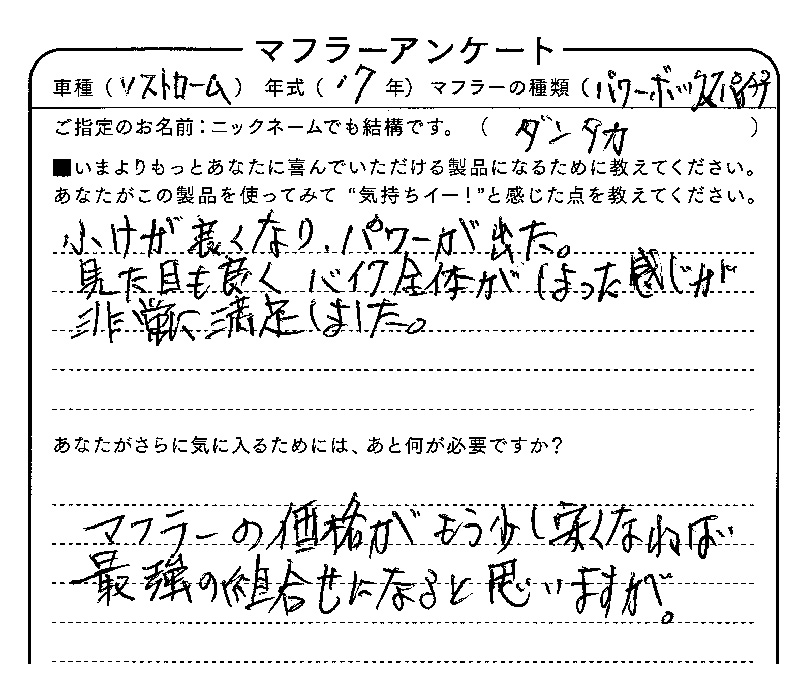 マフラーアンケート
車種（Vストローム） 年式（'17年） マフラーの種類（パワーボックス
ご指定のお名前：ニックネームでも結構です。（ダンタカ）
■いまよりもっとあなたに喜んでいただける製品になるために教えてください。
あなたがこの製品を使ってみて“気持ちイー！”と感じた点を教えてください。
ふけが良くなり、パワーが出た。
見た目も良く バイク全体がしまった感じが
非常に満足しました。
あなたがさらに気に入るためには、あと何が必要ですか？
マフラーの価格がもう少し安くなれば
最強の組合せになると思いますが。